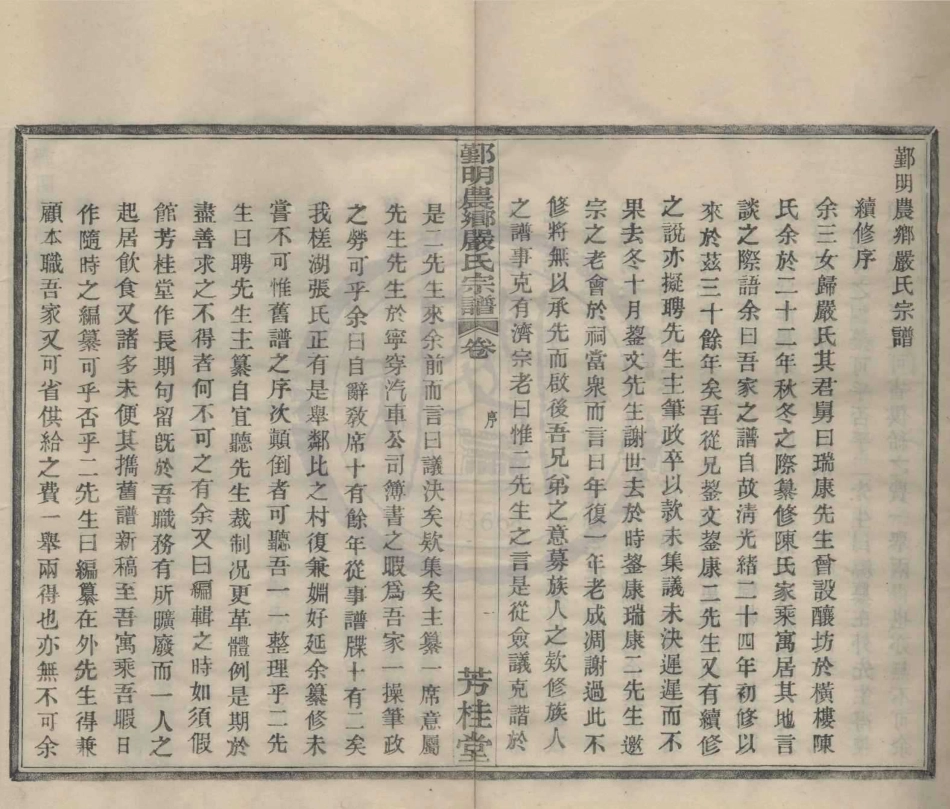 鄞明農鄉嚴氏宗譜
續修序
余三女歸嚴氏其君舅曰瑞康先生曾設釀坊於橫樓陳
氏余於二十二年秋冬之際纂修陳氏家乘寓居其地言
談之際語余曰吾家之譜自故清光緒二十四年初修以
來於茲三十餘年矣吾從兄鋆文鋆康二先生又有續修
之說亦擬聘先生主筆政卒以款未集議未決遲遲而不
果去冬十月鋆文先生謝世去於時鋆康瑞康二先生邀
宗之老會於祠當衆而言曰年復一年老成凋謝過此不
修將無以承先而啟後吾兄弟之意募族人之欵修族人
之譜事克有濟宗老曰惟二先生之言是從僉議克諧於
鄞明農鄉嚴氏宗譜 卷
序
一
芳桂堂
是二先生來余前而言曰議決矣欵集矣主纂一席意屬
先生先生於寧穿汽車公司簿書之暇爲吾家一操筆政
之勞可乎余曰自辭敎席十有餘年從事譜牒十有二矣
我槎湖張氏正有是舉鄰比之村復兼姻好延余纂修未
嘗不可惟舊譜之序次顛倒者可聽吾一一整理乎二先
生曰聘先生主纂自宜聽先生裁制况更革體例是期於
盡善求之不得者何不可之有余又曰編輯之時如須假
館芳桂堂作長期句留旣於吾職務有所曠廢而一人之
起居飲食又諸多未便其攜舊譜新稿至吾寓乘吾暇日
作隨時之編纂可乎否乎二先生曰編纂在外先生得兼
顧本職吾家又可省供給之費一舉兩得也亦無不可余